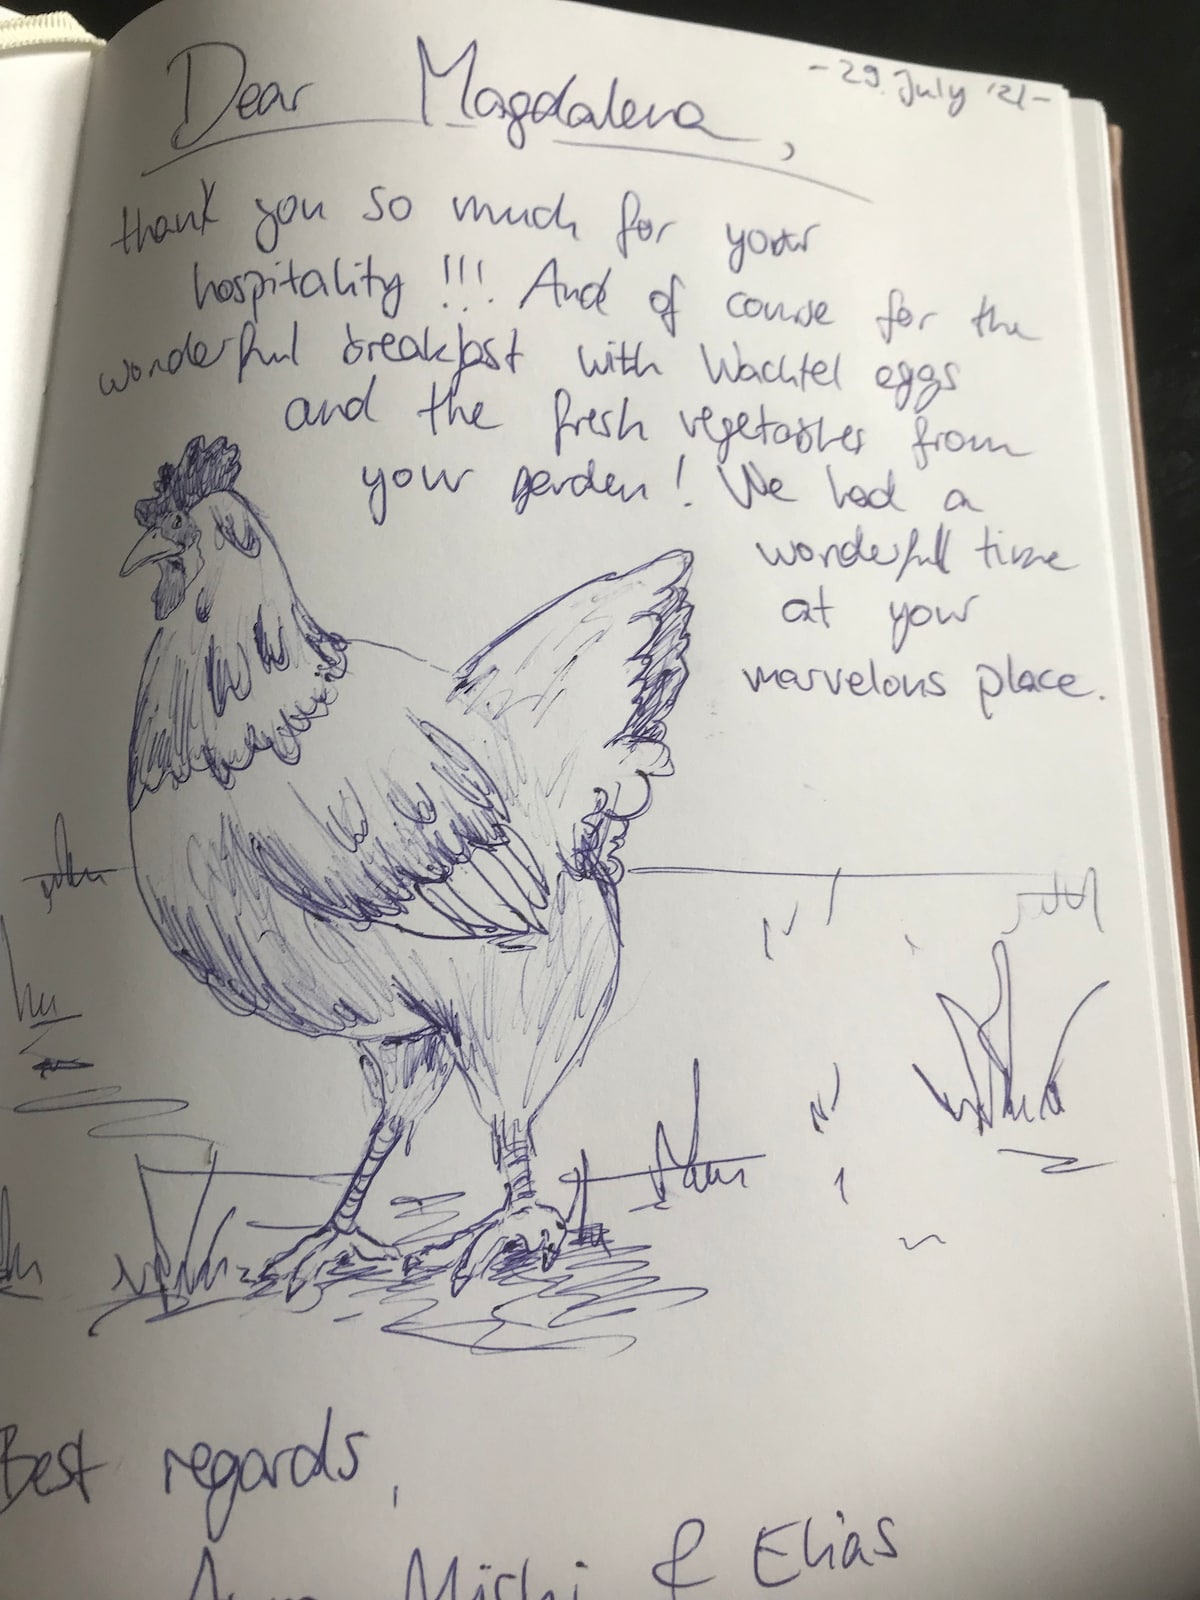 - 29. July '21 -
Dear Magdalena,
thank you so much for your
hospitality !!! And of course for the
wonderful breakfast with Wachtel eggs
and the fresh vegetables from
your garden! We had a
wonderfull time
at your
marvelous place.
Best regards,
Mishi & Elias